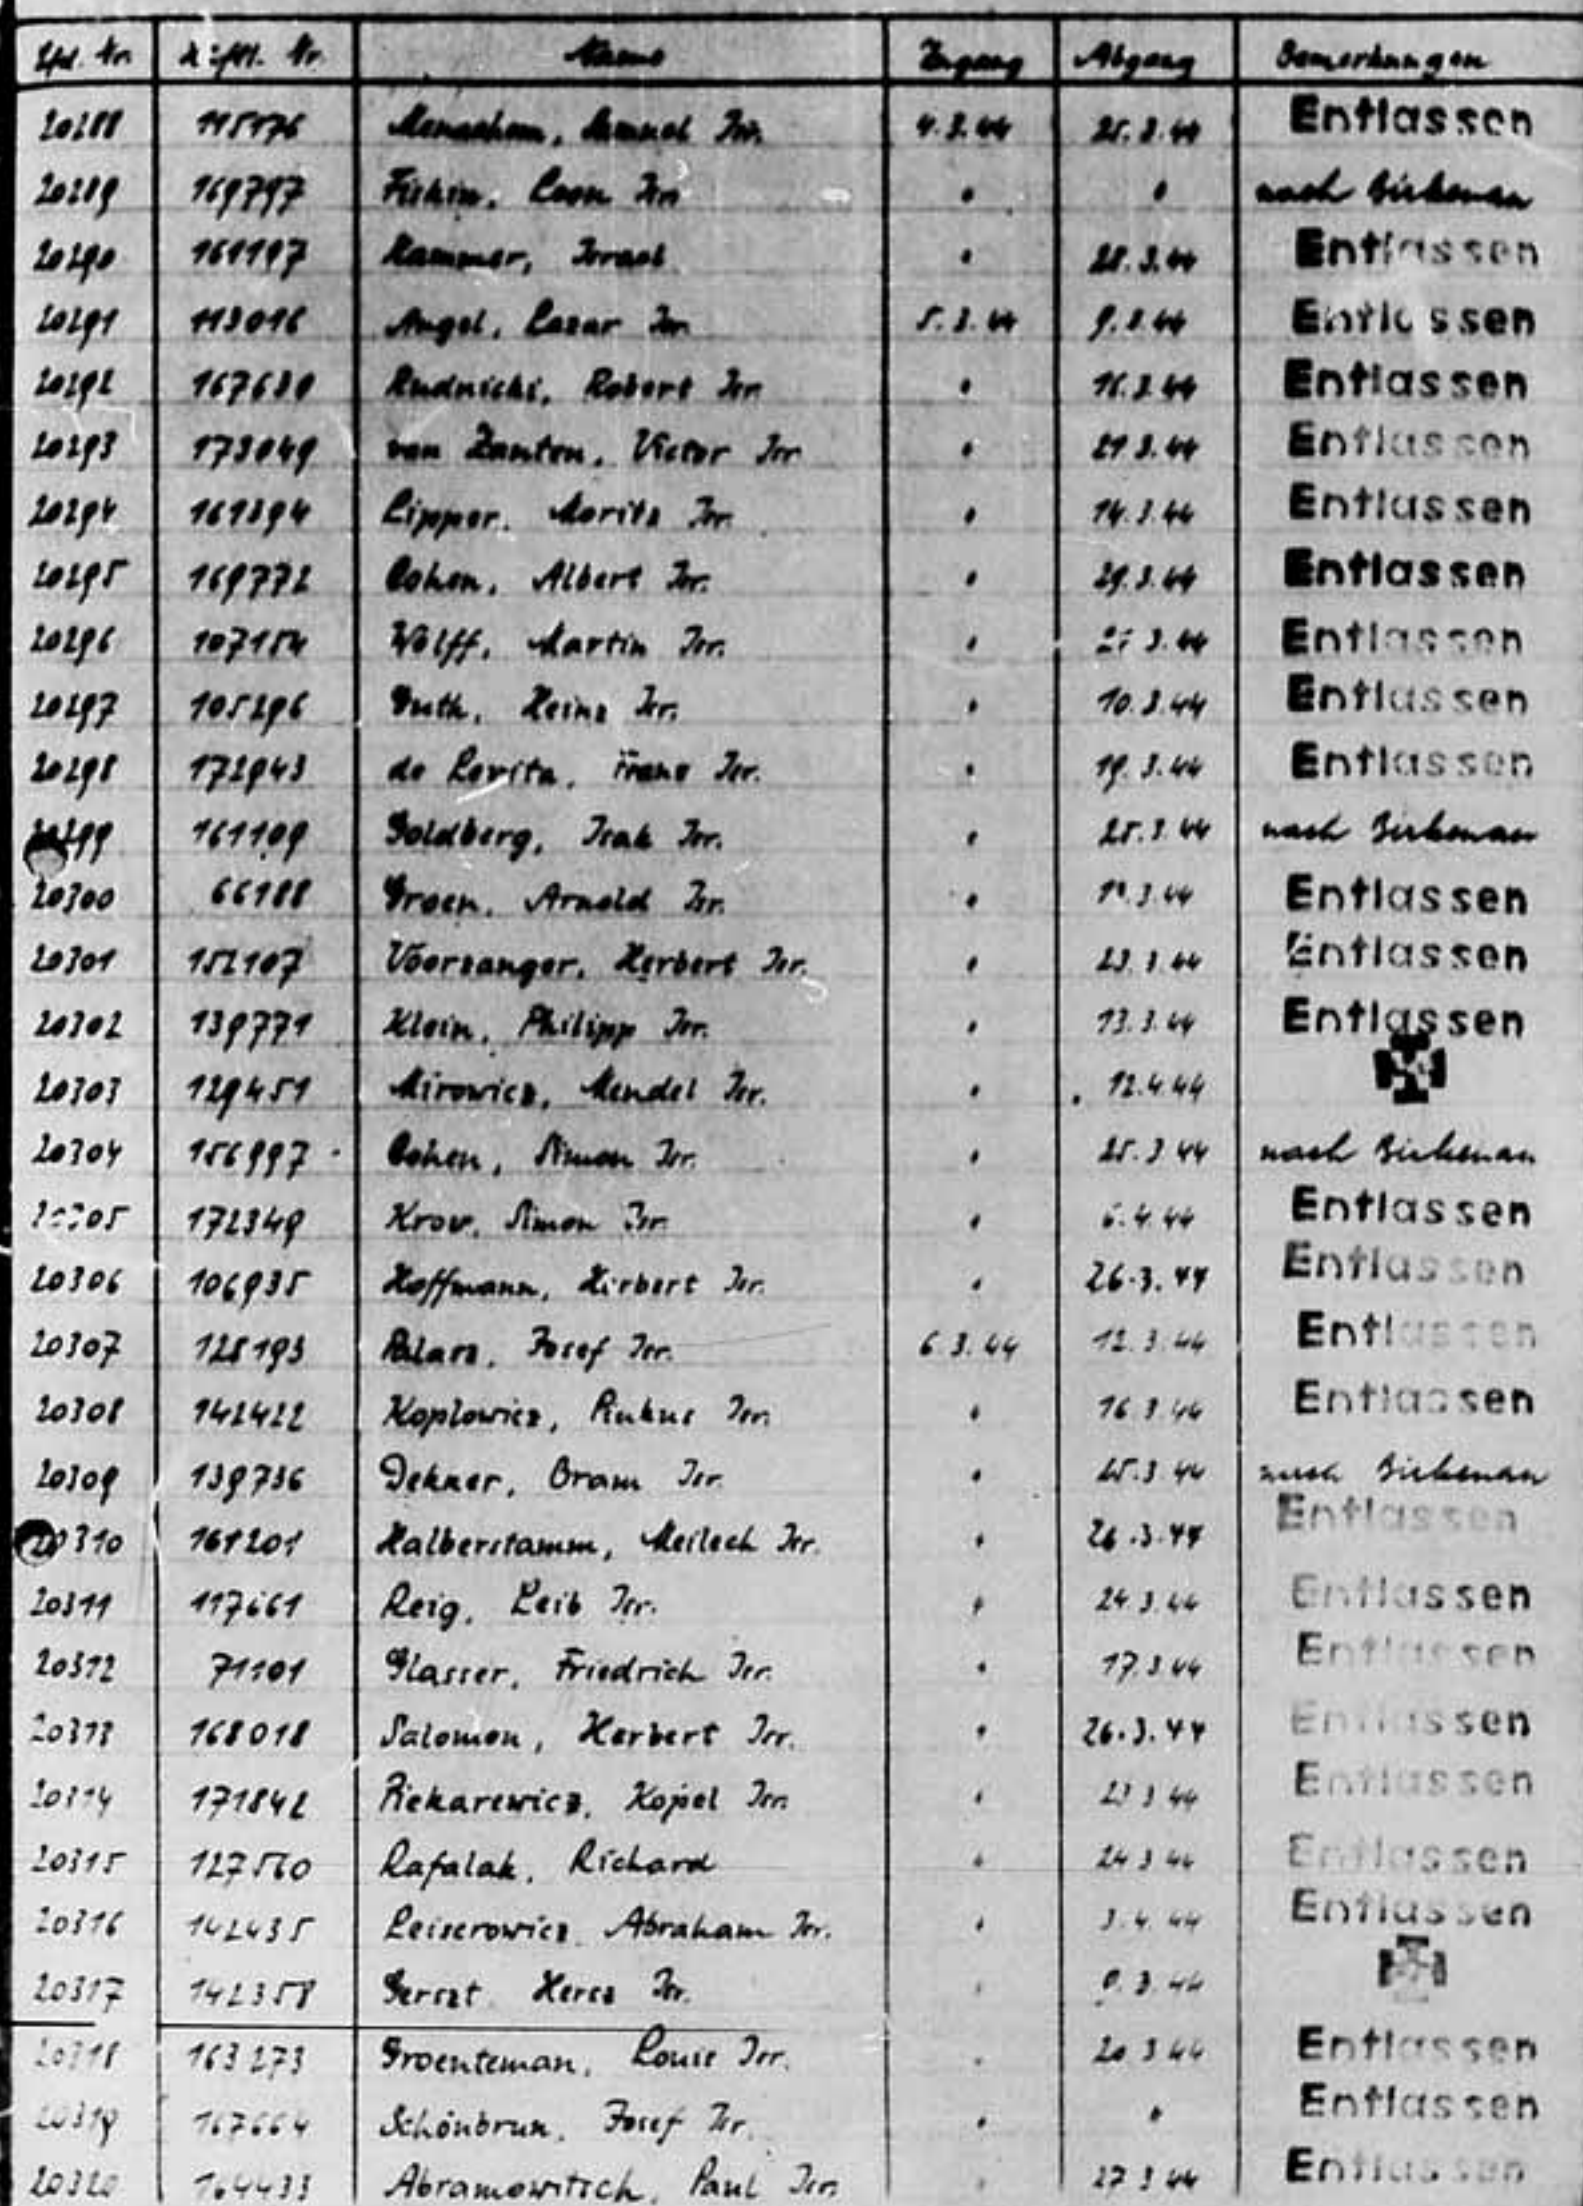 Lfd. Nr. Häftl. Nr. Name Zugang Abgang Bemerkungen
20288 115176 Menachem, Samuel Isr. 4.3.44 25.3.44 Entlassen
20289 169797 Leon Isr. " " nach Birkenau
20290 161197 Kammer, Israel " 28.3.44 Entlassen
20291 113016 Angel, Lazar Isr. 5.3.44 9.3.44 Entlassen
20292 167630 Rudnicki, Robert Isr. " 16.3.44 Entlassen
20293 173049 van Zanten, Victor Isr. " 21.3.44 Entlassen
20294 161394 Lipper, Moritz Isr. " 14.3.44 Entlassen
20295 169772 Cohen, Albert Isr. " 29.3.44 Entlassen
20296 107154 Wolff, Martin Isr. " 3.44 Entlassen
20297 105296 Guth, Heinz Isr. " 10.3.44 Entlassen
20298 172943 de Levita, Franz Isr. " 19.3.44 Entlassen
161109 Goldberg, Isak Isr. " 25.3.44 nach Birkenau
20300 66188 Groen, Arnold Isr. " 3.44 Entlassen
20301 152107 Voorzanger, Herbert Isr. " 23.3.44 Entlassen
20302 139771 Klein, Philipp Isr. " 13.3.44 Entlassen
20303 129451 Mirowicz, Mendel Isr. " 12.4.44
20304 156997 Cohen, Simon Isr. " 25.3.44 nach Birkenau
172349 Simon Isr. " 6.4.44 Entlassen
20306 106935 Hoffmann, Herbert Isr. " 26.3.44 Entlassen
20307 128193 Josef Isr. 6.3.44 12.3.44 Entlassen
20308 142422 Koplowicz, Pinkus Isr. " 16.3.44 Entlassen
20309 139736 Dekker, Bram Isr. " 25.3.44 nach Birkenau
20310 161201 Halberstamm, Meilech Isr. " 26.3.44 Entlassen
20311 117661 Reig, Leib Isr. " 24.3.44 Entlassen
20312 71101 Glasser, Friedrich Isr. " 17.3.44 Entlassen
20313 168018 Salomon, Herbert Isr. " 26.3.44 Entlassen
20314 171842 Piekarewicz, Kopel Isr. " 23.3.44 Entlassen
20315 127560 Rafalak, Richard " 24.3.44 Entlassen
20316 142435 Leiserowicz Abraham Isr. " 3.4.44 Entlassen
20317 142358 Gerszt Hersz Isr. " 3.44
20318 163273 Groenteman, Louis Isr. " 20.3.44 Entlassen
20319 167664 Schönbrun, Josef Isr. " " Entlassen
20320 164433 Abramowitsch, Paul Isr. " 27.3.44 Entlassen